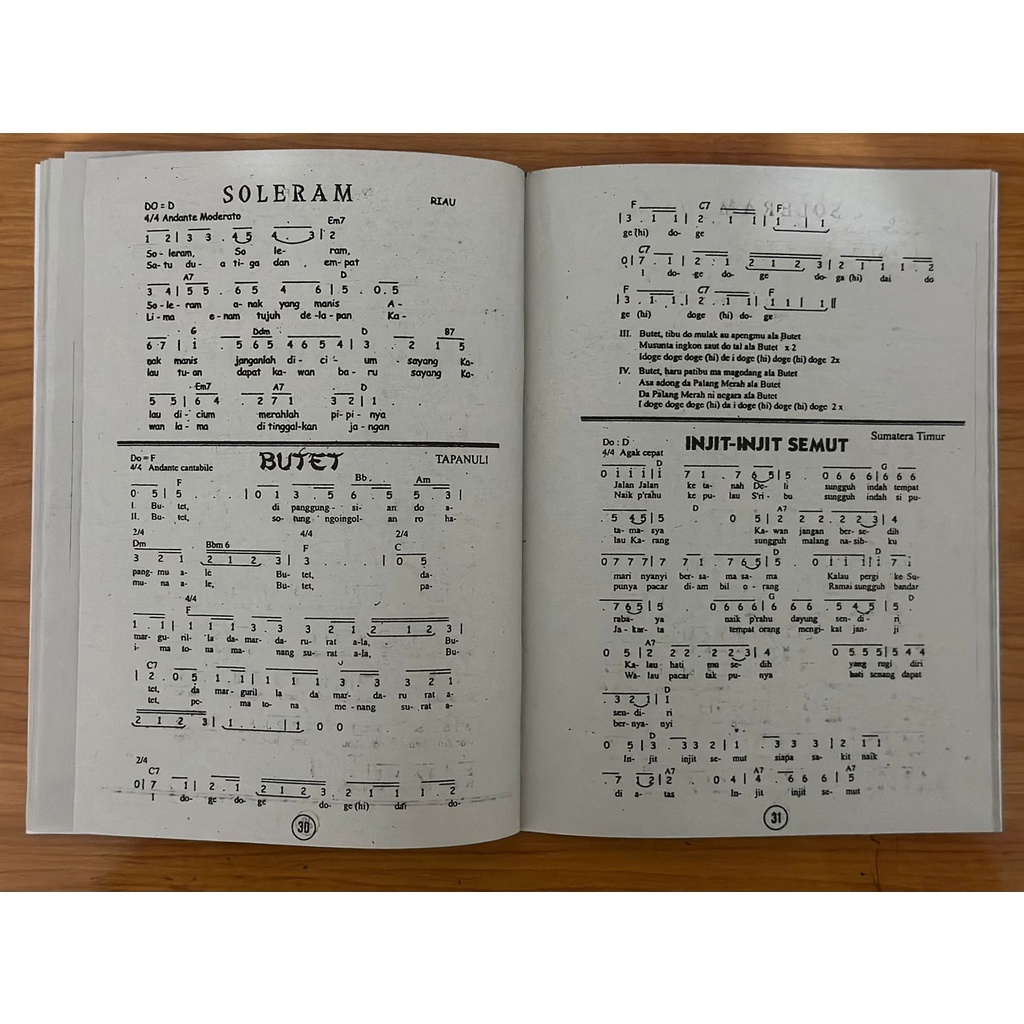 SOLERAM
DO = D
RIAU
4/4 Andante Moderato
Em7
1 2 | 3 3 . 4 5 4 . 3 | 2
So - leram, So le - ram,
Sa-tu du - a ti-ga dan , em-pat
A7 D
3 4 | 5 5 . 6 5 4 6 | 5 . 0.5
So-le-ram a-nak yang manis A-
Li-ma e-nam tujuh de-la-pan Ka-
G Ddm D B7
6 7 | 1 . 5 0 5 6 5 4 6 5 4 | 3 . 2 1 5
nak manis janganlah di-ci-um sayang Ka-
lau tu-an dapat ka-wan ba-ru sayang Ka-
Em7 A7 D
5 5 | 6 4 . 2 7 1 3 2 | 1 .
lau di-cium merahlah pi-pi-nya
wan la-ma di tinggal-kan ja-ngan
Do = F
BUTET
TAPANULI
4/4 Andante cantabile
F Bb Am
0 5 | 5 . . . | 0 1 3 . 5 6 . 5 5 . 3 |
I. Bu-tet, di panggung-si-an do a-
II. Bu-tet, so-tung ngoingol-an ro ha-
2/4 4/4 2/4
Dm Bbm 6 F C
3 2 1 . 2 1 2 . 3 | 3 . . . | 0 5
pang-mu a-le Bu-tet, da-
mu-na a-le, Bu-tet, pa-
4/4
F
1 . 1 | 1 1 1 3 . 3 3 2 1 2 1 2 . 3 |
mar-gu-ril-la da-mar-da-ru-rat a-la, Bu-
i-ma to-na ma-nang su-rat a-la, Bu-
C7
| 2 . 0 5 1 . 1 | 1 1 1 3 . 3 3 2 1
tet, da mar-guril la da mar-da-ru rat a-
tet, pe-ma to-na me-nang su-rat a-
2 1 2 3 | 1 . . . | 1 0 0
2/4
C7
0 | 7 . 1 | 2 . 1 2 1 2 3 . 2 1 1 1 . 2
I do-ge-ge do-ge (hi) dai do-
30
F C7 F
| 3 . 1 1 | 2 . 1 1 | 1 . | 1
ge (hi) do-ge
C7
0 | 7 . 1 | 2 . 1 2 1 2 3 | 2 1 1 1 . 2
I do-ge do-ge do-ga (hi) dai do
F C7 F
| 3 . 1 1 | 2 . 1 1 | 1 1 | 1 ||
ge (hi) doge (hi) do-ge
III. Butet, tibu do mulak au apengmu ala Butet
Musunta ingkon saut do tal ala Butet x 2
Idoge doge doge (hi) de i doge (hi) doge (hi) doge 2x
IV. Butet, haru patibu ma magodang ala Butet
Asa adong da Palang Merah ala Butet
Da Palang Merah ni negara ala Butet
I doge doge doge (hi) da i doge (hi) doge (hi) doge 2 x
Do : D
INJIT-INJIT SEMUT
Sumatera Timur
4/4 Agak cepat
D G
0 1 1 1 | 1 7 1 . 7 6 5 | 5 . 0 6 6 6 | 6 6 6
Jalan Jalan ke ta-nah De-li sungguh indah tempat
Naik p'rahu ke pu-lau S'ri-bu sungguh indah si pu-
D A7
. 5 4 5 | 5 . 0 5 | 2 2 2 . 2 2 3 | 4
ta-ma-sya Ka-wan jangan ber-se-dih
lau Ka-rang sungguh malang na-sib-ku
D D
0 7 7 7 | 7 7 1 . 7 6 5 | 5 . 0 1 1 1 | 1 7 1
mari nyanyi ber-sa-ma sa-ma Kalau pergi ke Su-
punya pacar di-am bil o-rang Ramai sungguh bandar
G D
. 7 6 5 | 5 0 6 6 6 | 6 6 6 . 5 4 5 | 5 .
raba-ya naik p'rahu dayung sen-di-ri
Ja-kar-ta tempat orang mengi-kat jan-ji
A7
0 5 | 2 2 2 . 2 2 3 | 4 0 5 5 5 | 5 4 4
Ka-lau hati mu se-dih yang rugi diri
Wa-lau pacar tak pu-nya hati senang dapat
D
. 3 2 1 | 1
sen-di-ri
ber-nya-nyi
D
0 5 | 3 . 3 3 2 | 1 . 3 3 3 | 2 1 1
In-jit injit se-mut siapa sa-kit naik
A7 A7 A7
. 7 1 2 | 2 . 0 4 | 4 . 6 6 6 | 5
di a-tas In-jit injit se-mut
31